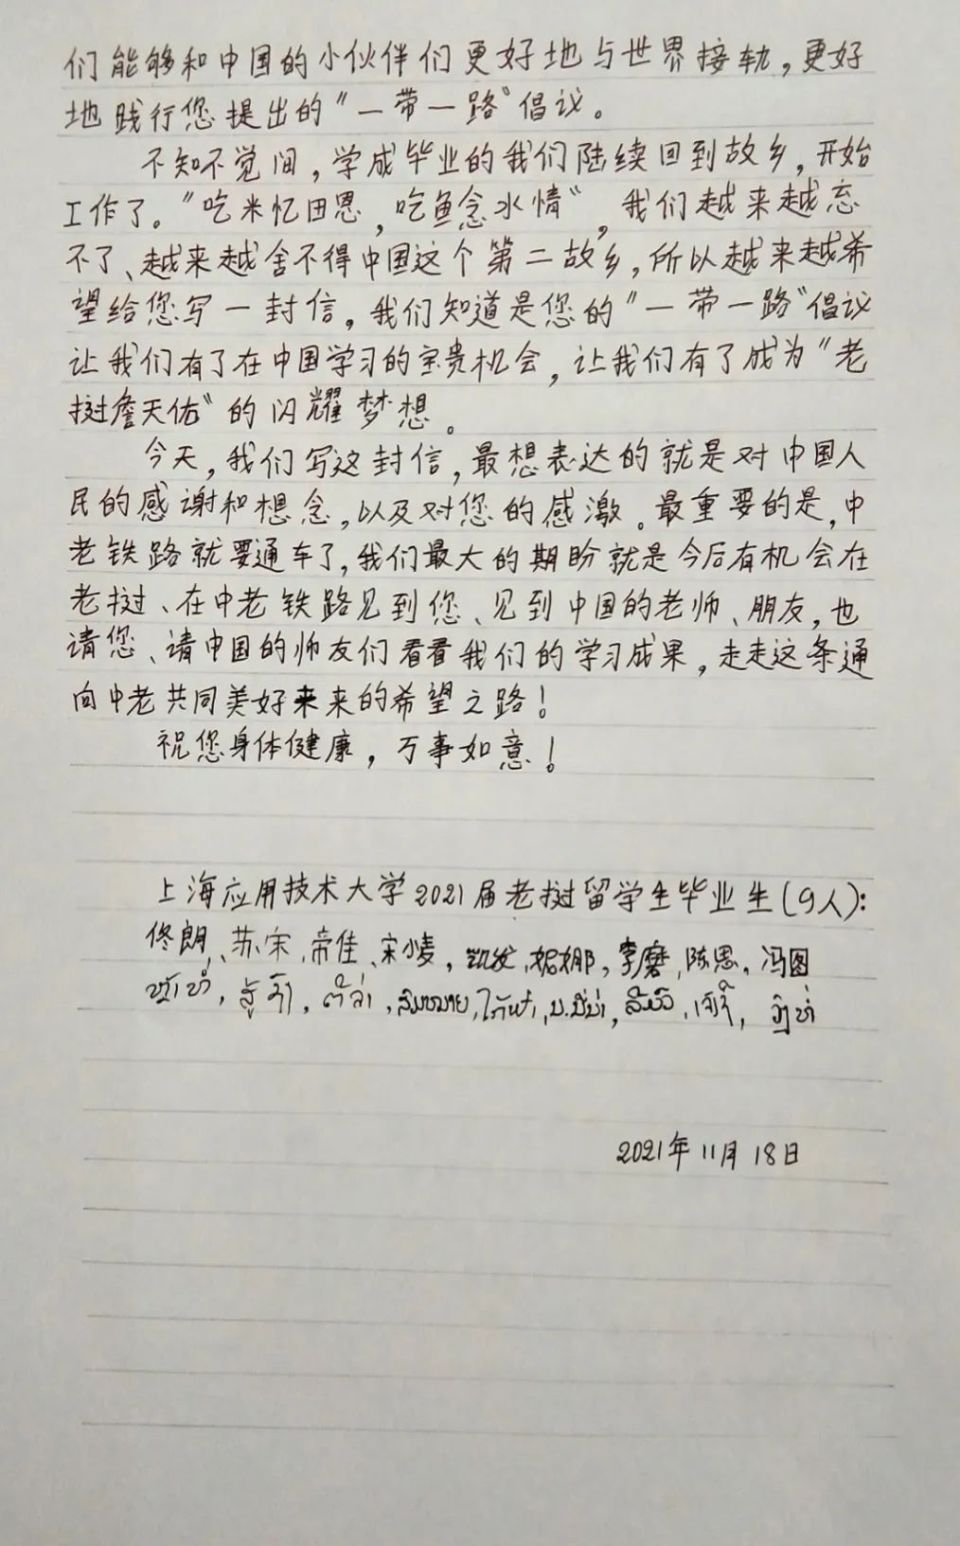 们能够和中国的小伙伴们更好地与世界接轨，更好
地践行您提出的“一带一路”倡议。
不知不觉间，学成毕业的我们陆续回到故乡，开始
工作了。“吃米忆田恩，吃鱼念水情”，我们越来越忘
不了、越来越舍不得中国这个第二故乡，所以越来越希
望给您写一封信。我们知道是您的“一带一路”倡议
让我们有了在中国学习的宝贵机会，让我们有了成为“老
挝詹天佑”的闪耀梦想。
今天，我们写这封信，最想表达的就是对中国人
民的感谢和想念，以及对您的感激。最重要的是，中
老铁路就要通车了，我们最大的期盼就是今后有机会在
老挝、在中老铁路见到您、见到中国的老师、朋友，也
请您、请中国的师友们看看我们的学习成果，走走这条通
向中老共同美好来来的希望之路！
祝您身体健康，万事如意！
上海应用技术大学2021届老挝留学生毕业生（9人）：
佟朗、苏宋、帝佳、宋小麦，凯发，妮娜，李磨，陈恩，冯图
2021年11月18日